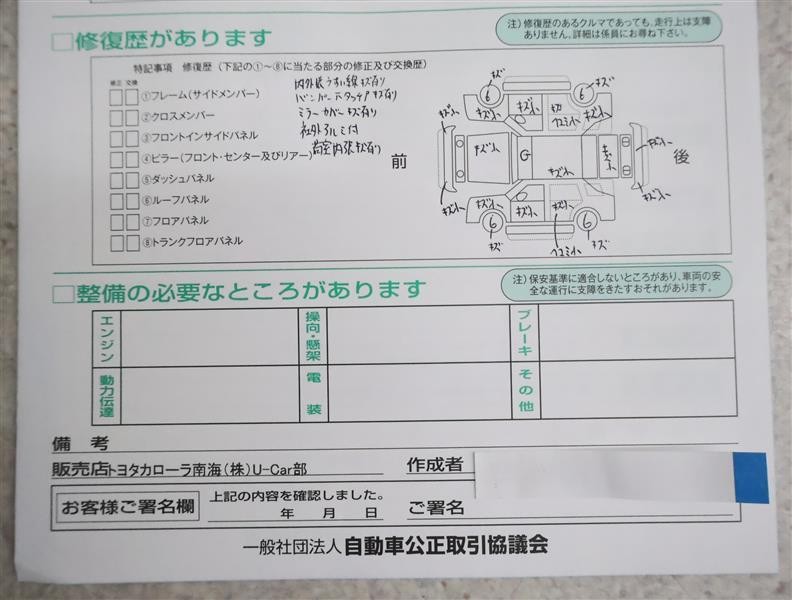 □修復歴があります
注）修復歴のあるクルマであっても、走行上は支障
ありません。詳細は係員にお尋ね下さい。
特記事項 修復歴（下記の①～⑧に当たる部分の修正及び交換歴）
修正 交換
①フレーム（サイドメンバー）
②クロスメンバー
③フロントインサイドパネル
④ピラー（フロント・センター及びリアー）
⑤ダッシュパネル
⑥ルーフパネル
⑦フロアパネル
⑧トランクフロアパネル
内外装うすい線キズ有り
バンパー下タッチアップキズ有り
ミラーカバーキズ有り
社外アルミ付
荷室内張キズ有り
前
後
キズ
キズ
6
6
キズ小
キズ小
キズ小
キズ小
キズ小
キズ小
G
キズ小
キズ小
キズ小
キズ小
キズ小
キズ小
キズ小
6
6
キズ
ヘコミ小
キズ
□整備の必要なところがあります
注）保安基準に適合しないところがあり、車両の安
全な運行に支障をきたすおそれがあります。
エンジン
操向・懸架
ブレーキ
動力伝達
電装
その他
備考
販売店トヨタカローラ南海（株）U-Car部
作成者
お客様ご署名欄
上記の内容を確認しました。
年 月 日
ご署名
一般社団法人 自動車公正取引協議会